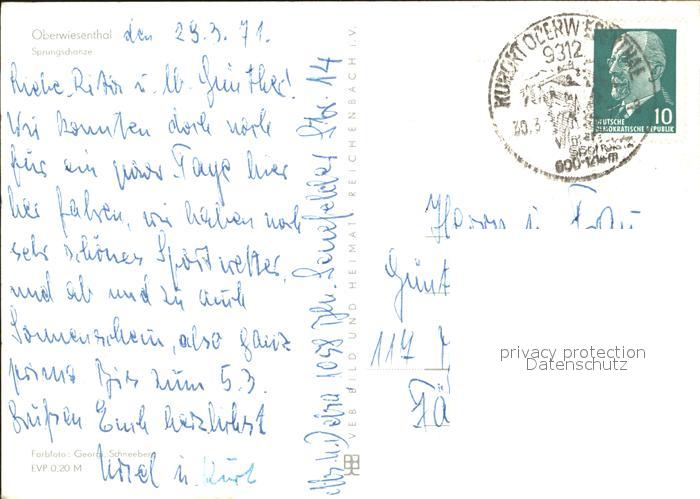 Oberwiesenthal
Sprungschanze
den 29.3.71.
Günther!
Wir konnten doch noch
für ein paar Tage hier
her fahren, wir haben noch
sehr schönes Sportwetter,
und ab und zu auch
Sonnenschein, also ganz
prima Bis zum 5.3.
Grüßen Euch herzlichst
Ursel u. Kurt
Farbfoto: Georg Schneeberg
EVP 0,20 M
1058 Bln. Str 14
VEB BILD UND HEIMAT REICHENBACH I.V.
KURORT OBERWIESENTHAL
9312
30.3
600-1214m
10
DEUTSCHE
DEMOKRATISCHE REPUBLIK
Herrn u. Frau
Günt
114
privacy protection
Datenschutz